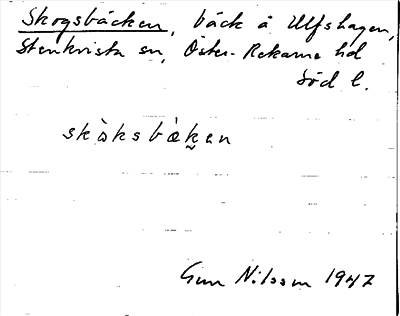 Skogsbäcken, bäck å Ulfshagen,
Stenkvista sn, Öster-Rekarne hd
Söd l.
skò̀ksbäḵen
Gun Nilsson 1947